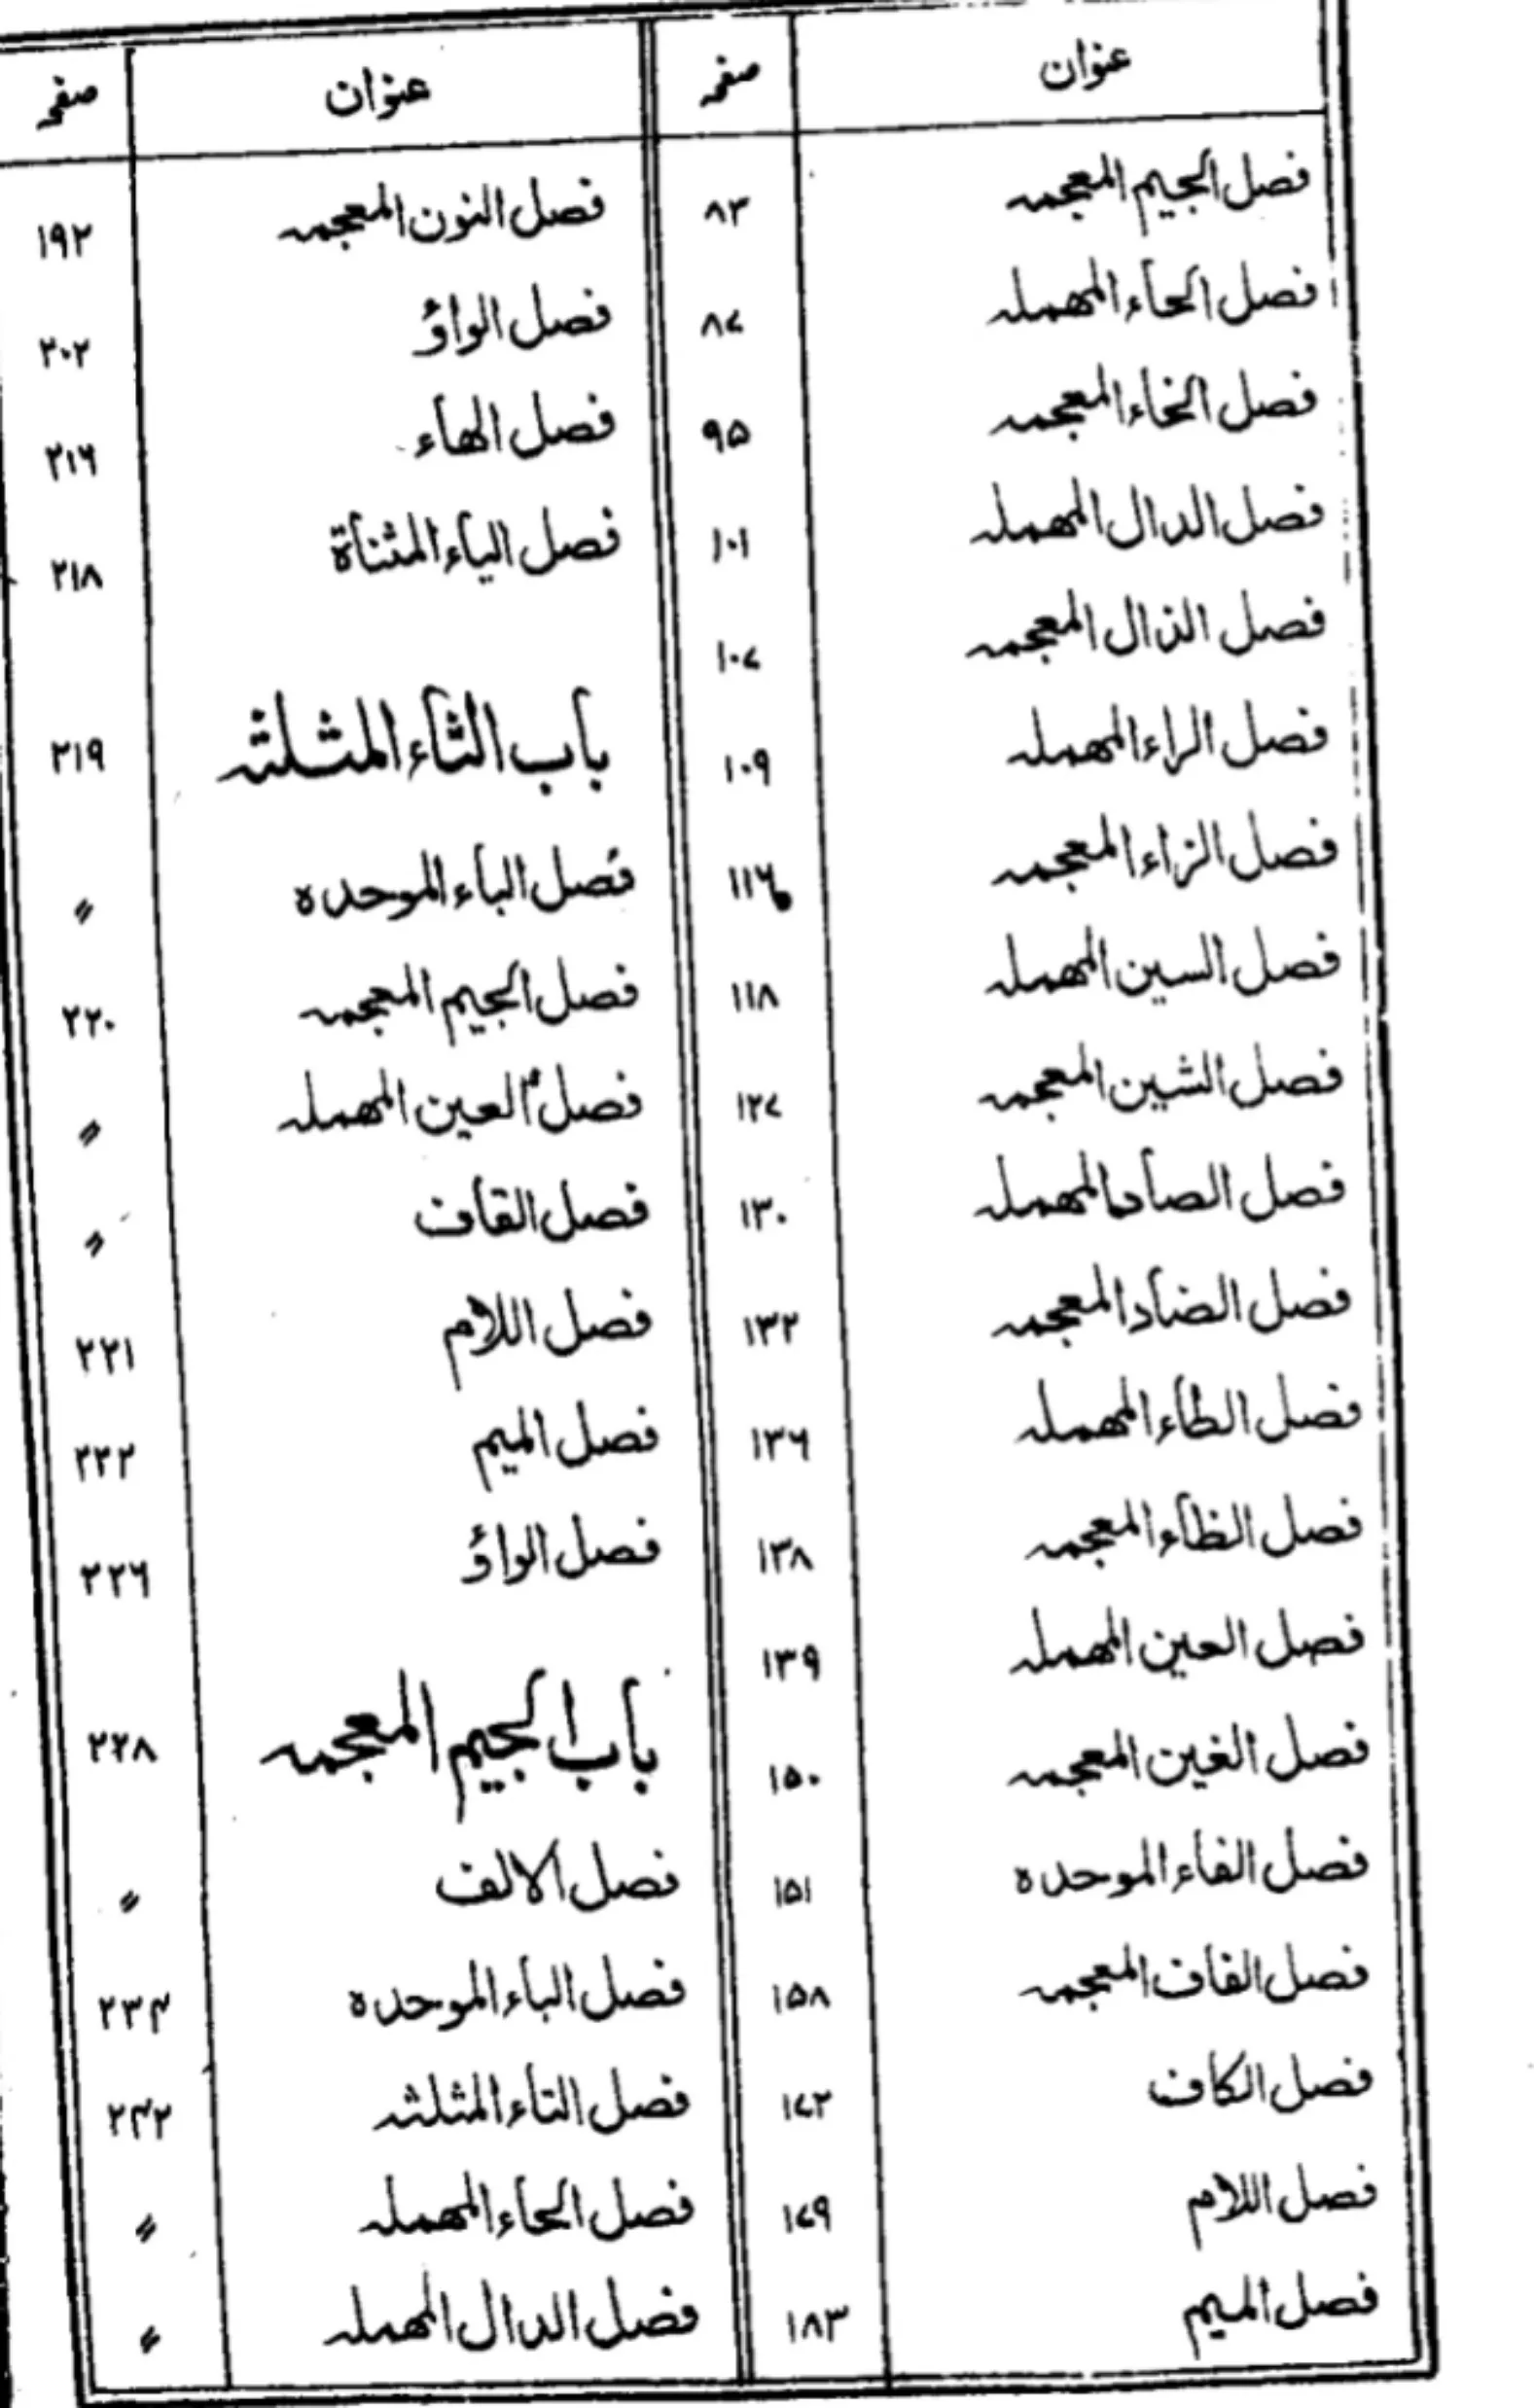 عنوان صفحہ
فصل الجیم المعجمہ ۸۳
فصل الحاء المھملہ ۸۷
فصل الخاء المعجمہ ۹۵
فصل الدال المھملہ ۱۰۱
فصل الذال المعجمہ ۱۰۷
فصل الراء المھملہ ۱۰۹
فصل الزاء المعجمہ ۱۱۶
فصل السین المھملہ ۱۱۸
فصل الشین المعجمہ ۱۲۷
فصل الصاد المھملہ ۱۳۰
فصل الضاد المعجمہ ۱۳۲
فصل الطاء المھملہ ۱۳۶
فصل الظاء المعجمہ ۱۳۸
فصل العین المھملہ ۱۳۹
فصل الغین المعجمہ ۱۵۰
فصل الفاء الموحدہ ۱۵۱
فصل القاف المعجمہ ۱۵۸
فصل الکاف ۱۷۲
فصل اللام ۱۷۹
فصل المیم ۱۸۳
عنوان صفحہ
فصل النون المعجمہ ۱۹۲
فصل الواؤ ۲۰۲
فصل الھاء ۲۱۶
فصل الیاء المثناۃ ۲۱۸
باب الثاء المثلثہ ۲۱۹
فصل الباء الموحدہ 〃
فصل الجیم المعجمہ ۲۲۰
فصل العین المھملہ 〃
فصل القاف 〃
فصل اللام ۲۲۱
فصل المیم ۲۲۲
فصل الواؤ ۲۲۶
باب الجیم المعجمہ ۲۲۸
فصل الالف 〃
فصل الباء الموحدہ ۲۳۴
فصل التاء المثلثہ ۲۴۲
فصل الحاء المھملہ 〃
فصل الدال المھملہ 〃